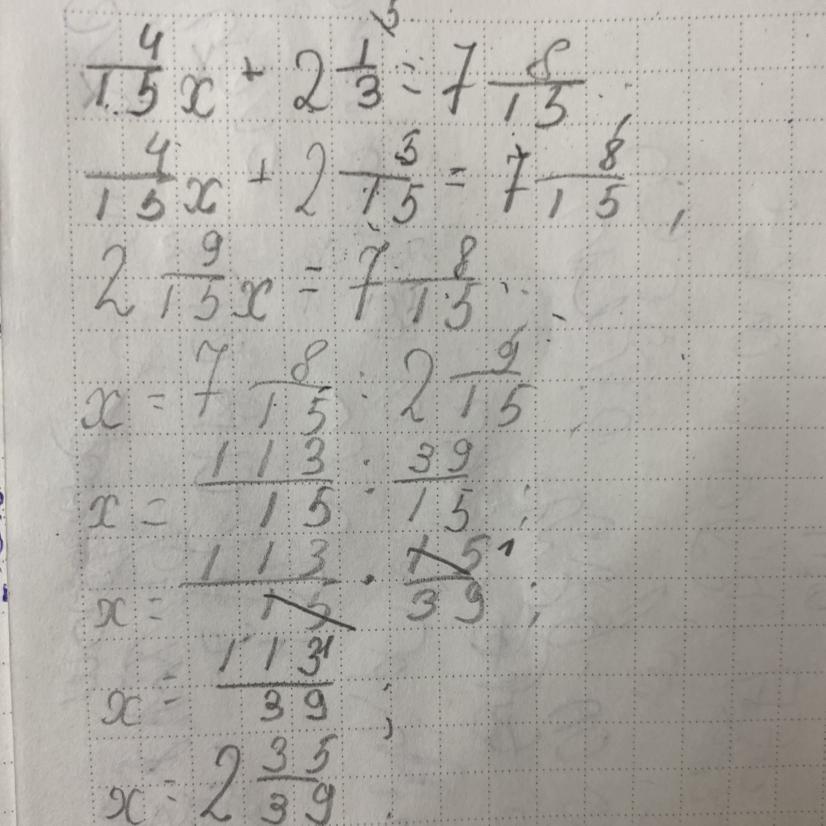 4/15 x + 2 1/3 = 7 8/15 ;
4/15 x + 2 5/15 = 7 8/15 ;
2 9/15 x = 7 8/15 ;
x = 7 8/15 : 2 9/15
x = 113/15 : 39/15 ;
x = 113/15 · 15/39 ;
x = 113/39 ;
x = 2 35/39